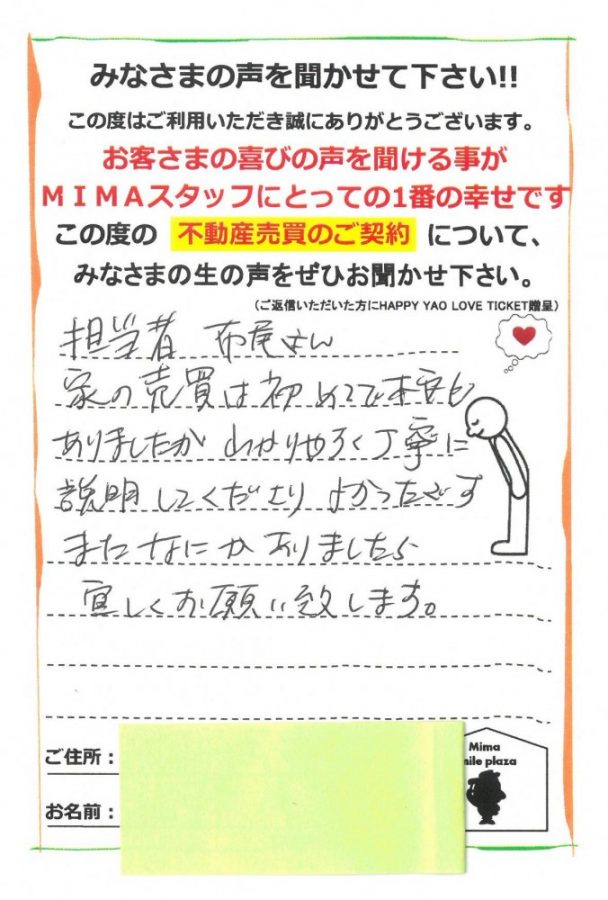 みなさまの声を聞かせて下さい!!
この度はご利用いただき誠にありがとうございます。
お客さまの喜びの声を聞ける事が
MIMAスタッフにとっての1番の幸せです
この度の 不動産売買のご契約 について、
みなさまの生の声をぜひお聞かせ下さい。
(ご返信いただいた方にHAPPY YAO LOVE TICKET贈呈)
担当者 布尾さん
家の売買は初めてで不安も
ありましたが わかりやすく丁寧に
説明してくださり よかったです
またなにかありましたら
宜しくお願い致します。
ご住所:
お名前:
Mima
mile plaza